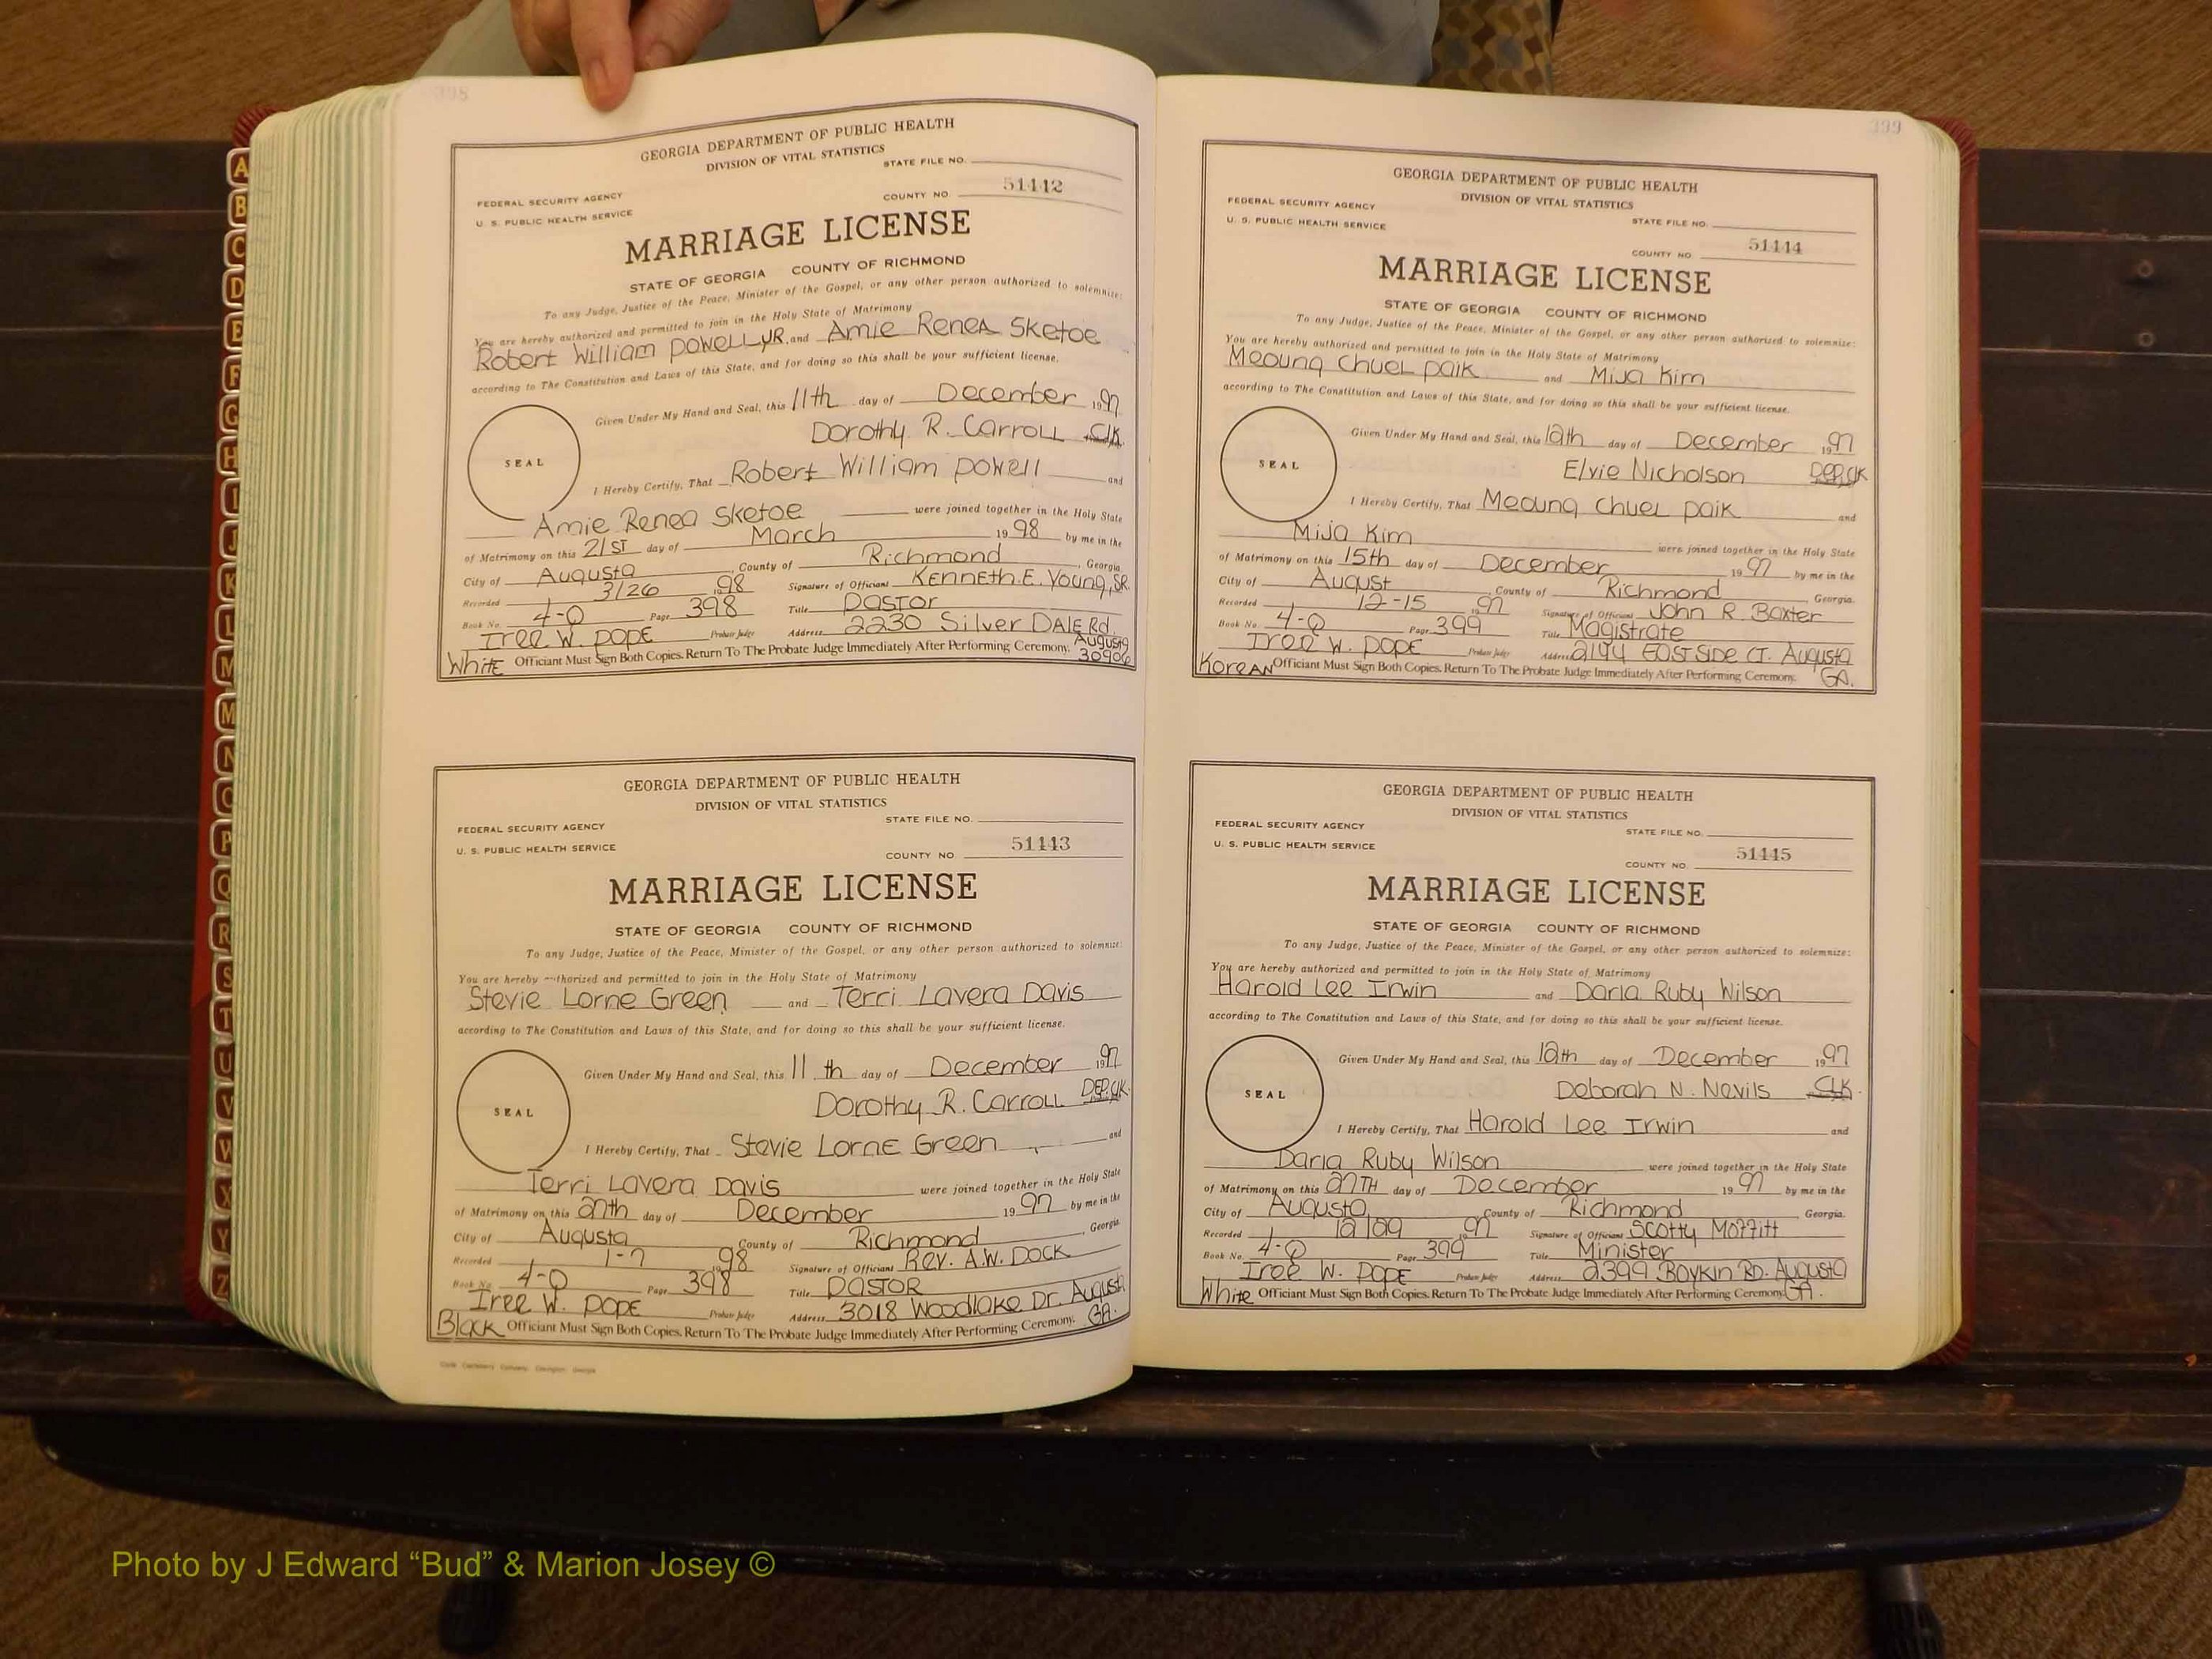 398
GEORGIA DEPARTMENT OF PUBLIC HEALTH
DIVISION OF VITAL STATISTICS
STATE FILE NO.
FEDERAL SECURITY AGENCY
COUNTY NO. 51442
U. S. PUBLIC HEALTH SERVICE
MARRIAGE LICENSE
STATE OF GEORGIA COUNTY OF RICHMOND
To any Judge, Justice of the Peace, Minister of the Gospel, or any other person authorized to solemnize:
You are hereby authorized and permitted to join in the Holy State of Matrimony
Robert William Powell JR. and Amie Renea Sketoe
according to The Constitution and Laws of this State, and for doing so this shall be your sufficient license.
Given Under My Hand and Seal, this 11th day of December 1997
Dorothy R. Carroll Clk.
SEAL
I Hereby Certify, That Robert William Powell and
Amie Renea Sketoe were joined together in the Holy State
of Matrimony on this 21ST day of March 1998 by me in the
City of Augusta, County of Richmond, Georgia.
Recorded 3/26 1998 Signature of Officiant Kenneth E. Young, SR.
Book No. 4-Q Page 398 Title Pastor
Iree W. Pope Probate Judge Address 2230 Silver Dale Rd. Augusta
White Officiant Must Sign Both Copies. Return To The Probate Judge Immediately After Performing Ceremony. 30906
GEORGIA DEPARTMENT OF PUBLIC HEALTH
DIVISION OF VITAL STATISTICS
STATE FILE NO.
FEDERAL SECURITY AGENCY
U. S. PUBLIC HEALTH SERVICE
COUNTY NO 51443
MARRIAGE LICENSE
STATE OF GEORGIA COUNTY OF RICHMOND
To any Judge, Justice of the Peace, Minister of the Gospel, or any other person authorized to solemnize:
You are hereby authorized and permitted to join in the Holy State of Matrimony
Stevie Lorne Green and Terri Lavera Davis
according to The Constitution and Laws of this State, and for doing so this shall be your sufficient license.
Given Under My Hand and Seal, this 11th day of December 1997
Dorothy R. Carroll DEP. Clk.
SEAL
I Hereby Certify, That Stevie Lorne Green and
Terri Lavera Davis were joined together in the Holy State
of Matrimony on this 27th day of December 1997 by me in the
City of Augusta County of Richmond, Georgia.
Recorded 1-7 1998 Signature of Officiant Rev. A.W. Dock
Book No. 4-Q Page 398 Title Pastor
Iree W. Pope Probate Judge Address 3018 Woodlake Dr. Augusta
Black Officiant Must Sign Both Copies. Return To The Probate Judge Immediately After Performing Ceremony. GA.
399
GEORGIA DEPARTMENT OF PUBLIC HEALTH
DIVISION OF VITAL STATISTICS
FEDERAL SECURITY AGENCY
U. S. PUBLIC HEALTH SERVICE
STATE FILE NO.
COUNTY NO. 51444
MARRIAGE LICENSE
STATE OF GEORGIA COUNTY OF RICHMOND
To any Judge, Justice of the Peace, Minister of the Gospel, or any other person authorized to solemnize:
You are hereby authorized and permitted to join in the Holy State of Matrimony
Meoung Chuel Paik and Mija Kim
according to The Constitution and Laws of this State, and for doing so this shall be your sufficient license.
Given Under My Hand and Seal, this 12th day of December 1997
Elvie Nicholson DEP. Clk
SEAL
I Hereby Certify, That Meoung Chuel Paik and
Mija Kim were joined together in the Holy State
of Matrimony on this 15th day of December 1997 by me in the
City of August County of Richmond Georgia.
Recorded 12-15 1997 Signature of Officiant John R. Baxter
Book No. 4-Q Page 399 Title Magistrate
Iree W. Pope Probate Judge Address 2144 East Side Ct. Augusta
Korean Officiant Must Sign Both Copies. Return To The Probate Judge Immediately After Performing Ceremony. GA.
GEORGIA DEPARTMENT OF PUBLIC HEALTH
DIVISION OF VITAL STATISTICS
FEDERAL SECURITY AGENCY
STATE FILE NO.
U. S. PUBLIC HEALTH SERVICE
COUNTY NO. 51445
MARRIAGE LICENSE
STATE OF GEORGIA COUNTY OF RICHMOND
To any Judge, Justice of the Peace, Minister of the Gospel, or any other person authorized to solemnize:
You are hereby authorized and permitted to join in the Holy State of Matrimony
Harold Lee Irwin and Darla Ruby Wilson
according to The Constitution and Laws of this State, and for doing so this shall be your sufficient license.
Given Under My Hand and Seal, this 12th day of December 1997
Deborah N. Nevils Clk.
SEAL
I Hereby Certify, That Harold Lee Irwin and
Darla Ruby Wilson were joined together in the Holy State
of Matrimony on this 27TH day of December 1997 by me in the
City of Augusta County of Richmond Georgia.
Recorded 12/29 1997 Signature of Officiant Scotty Moffitt
Book No. 4-Q Page 399 Title Minister
Iree W. Pope Probate Judge Address 2399 Boykin RD. Augusta
White Officiant Must Sign Both Copies. Return To The Probate Judge Immediately After Performing Ceremony. GA.
A
B
C
D
E
F
G
H
I
J
K
L
M
M
N
O
P
Q
R
S
T
U
V
W
X
Y
Z
Photo by J Edward “Bud” & Marion Josey ©